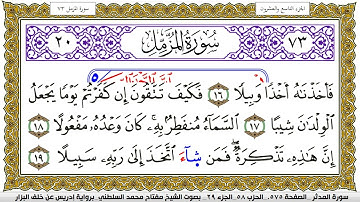 سورة المزمل ٧٣
الجزء التاسع والعشرون
٢٠ سُورَةُ المُزَّمِّل ٧٣
فَأَخَذْنَٰهُ أَخْذًا وَبِيلًا ١٦ فَكَيْفَ تَتَّقُونَ إِن كَفَرْتُمْ يَوْمًا يَجْعَلُ
ٱلْوِلْدَٰنَ شِيبًا ١٧ ٱلسَّمَآءُ مُنفَطِرٌۢ بِهِۦ كَانَ وَعْدُهُۥ مَفْعُولًا ١٨
إِنَّ هَٰذِهِۦ تَذْكِرَةٌ فَمَن شَآءَ ٱتَّخَذَ إِلَىٰ رَبِّهِۦ سَبِيلًا ١٩
سورة المدثر _ الصفحة ٥٧٥ _ الحزب ٥٨ _ الجزء ٢٩ _ بصوت الشيخ مفتاح محمد السلطني _ برواية إدريس عن خلف البزار